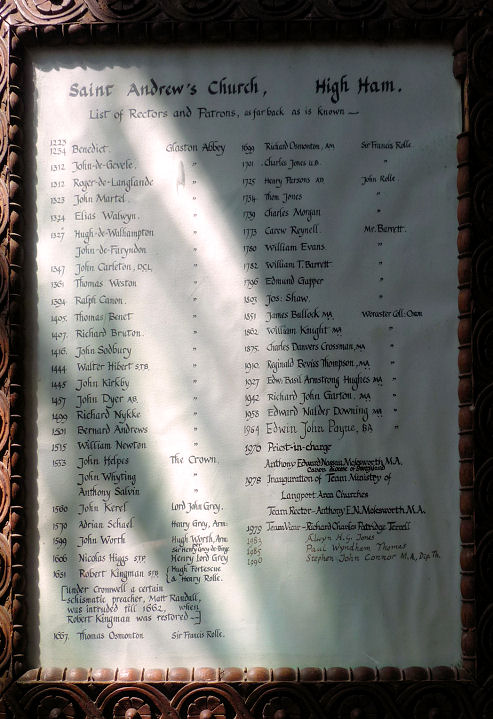 Saint Andrew's Church, High Ham.
List of Rectors and Patrons, as far back as is known —
1225
1254 Benedict. Glaston Abbey
1312 John-de-Gevele. "
1312 Roger-de-Langlande "
1323 John Martel. "
1324 Elias Walwyn. "
1327 Hugh-de-Walhampton "
John-de-Faryndon
1347 John Carleton, D.C.L. "
1361 Thomas Weston "
1394 Ralph Canon. "
1405 Thomas Benet "
1407. Richard Bruton. "
1416. John Sodbury "
1444 Walter Hibert S.T.B. "
1445 John Kirkby "
1457 John Dyer A.B. "
1499 Richard Nykke "
1501 Bernard Andrews "
1515 William Newton "
1553 John Helpes The Crown.
John Whyting
Anthony Salvin
1560 John Kerel Lord John Grey.
1570 Adrian Schael Henry Grey, Arm:
1599 John Worth Hugh Worth, Arm:
per
Sir Henry Grey de Pirgo
1606 Nicolas Higgs S.T.P. Henry Lord Grey
1631 Robert Kingman S.T.P. { Hugh Fortescue
& Henry Rolle.
[under Cromwell a certain
schismatic preacher, Matt Randall,
was intruded till 1662, when
Robert Kingman was restored —]
1667. Thomas Osmonton Sir Francis Rolle.
1699 Richard Osmonton, A.M. Sir Francis Rolle
1701 Charles Jones LL.B. "
1725 Henry Parsons A.M. John Rolle
1734 Thom. Jones "
1739 Charles Morgan "
1773 Carew Reynell. Mr. Barrett.
1780 William Evans. "
1782 William T. Barrett "
1796 Edmund Gapper "
1803 Jos: Shaw. "
1851 James Bullock M.A. Worcester Coll: Oxon
1862 William Knight M.A. "
1875 Charles Danvers Crossman, M.A. "
1910 Reginald Beviss Thompson, M.A. "
1927 Edw. Basil Armstrong Hughes M.A. "
1942 Richard John Garton. M.A. "
1958 Edward Nalder Downing M.A. "
1964 Edwin John Payne, B.A. "
1970 Priest-in-charge
Anthony Edward Nassau Molesworth, M.A.
1978 Inauguration of Team Ministry of
Langport Area Churches
Team Rector - Anthony E.N. Molesworth, M.A.
1979 Team Vicar - Richard Charles Patridge Terrell
Alwyn H.G. Jones
1985 Paul Wyndham Thomas
1990 Stephen John Connor M.A., Dip.Th.